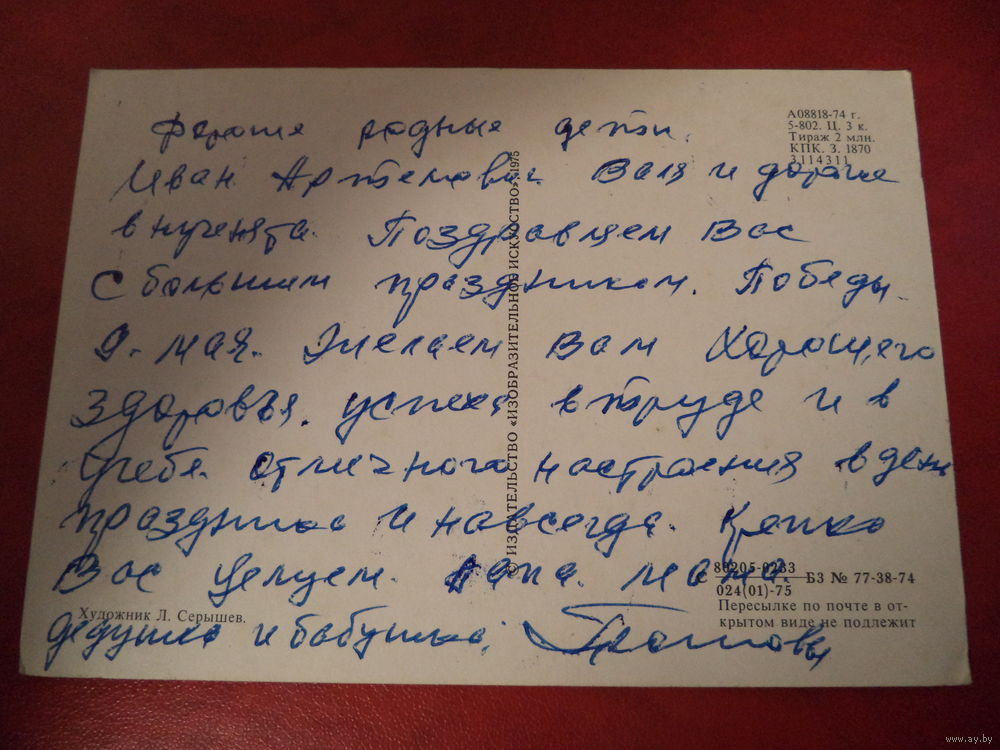 Дорогие родные дети.
Иван Артемович Валя и дорогие
внученята. Поздравляем Вас
с большим праздником. Победы.
9. мая. Желаем Вам хорошего
здоровья. успеха в труде и в
учебе. отличного настроения в день
праздника и навсегда. Крепко
Вас целуем. Папа. мама.
дедушка и бабушка.
А08818-74 г.
5-802. Ц. 3 к.
Тираж 2 млн.
КПК. З. 1870
3114311
© ИЗДАТЕЛЬСТВО «ИЗОБРАЗИТЕЛЬНОЕ ИСКУССТВО». 1975
Художник Л. Серышев.
С 80205-0233 БЗ № 77-38-74
024(01)-75
Пересылке по почте в от-
крытом виде не подлежит
www.ay.by